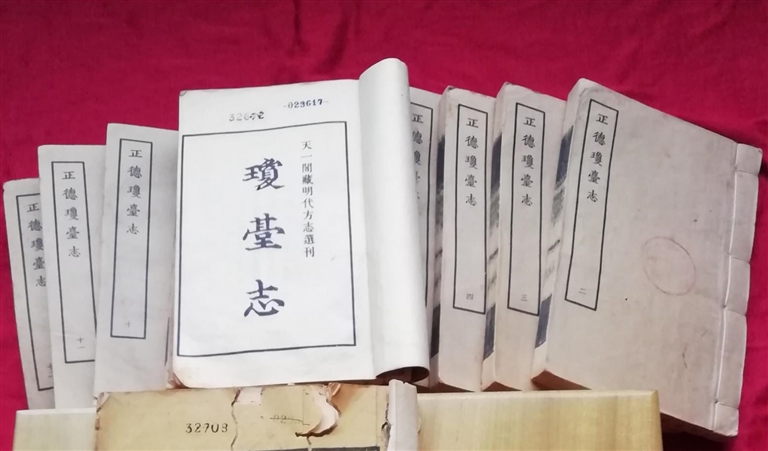 正德瓊臺志
正德瓊臺志
十一
正德瓊臺志
十
-023617-
天一閣藏明代方志選刊
瓊臺志
正德瓊臺志
四
正德瓊臺志
三
正德瓊臺志
二
32908